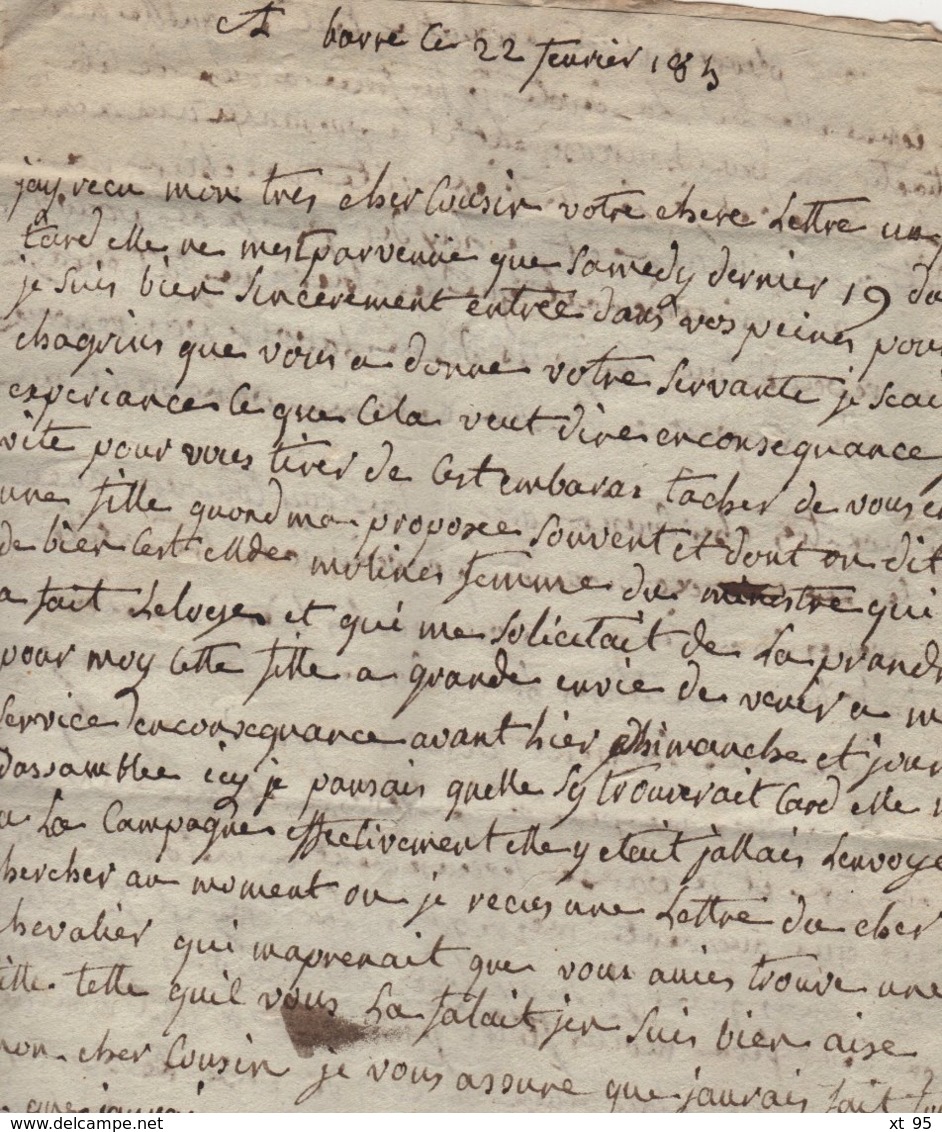 A barre Ce 22 fevrier 18
jay recu mon tres cher Cousin votre chere Lettre un
tard elle ne mest parvenüe que Samedy dernier 19 du
je Suis bien Sincerement entrée dans vos peines pour
chagrins que vous a donne votre Servante je Scai
experiance Ce que Cela veut dire enconsequance
vite pour vous tirer de Cest embaras tacher de vous
une fille quond ma proposée Souvent et dont on dit
de bien Cest Mde molines femme du ministre qui
a fait Leloge et qui me Solicitait de La prandr
pour moy Cette fille a grande envie de venir a m
Service enconsequance avant hier dhimanche et jour
Dassamblée icy je pansais quelle Sy trouverait Card elle
a La Campagne effectivement elle y etait jallais Lenvoye
chercher au moment ou je recus une Lettre du cher
chevalier qui maprenait que vous aviés trouve une
fille telle quil vous La falait jen Suis bien aise
mon cher Cousin je vous assure que jaurais fait
que jaurai
xt 95